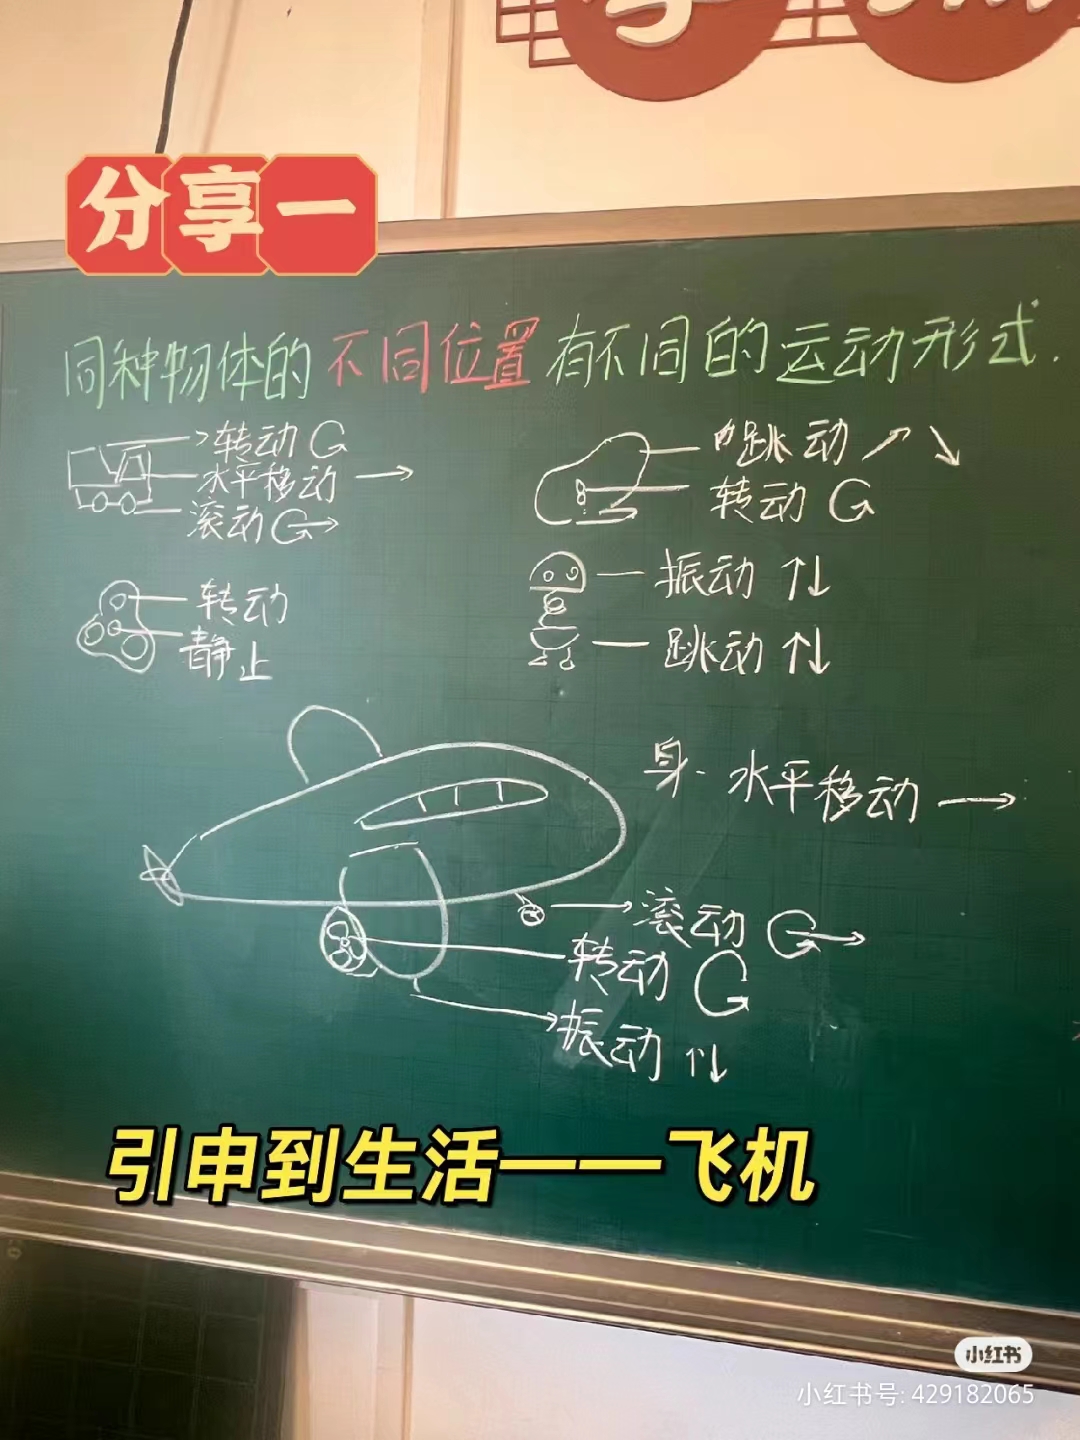 分享一
同种物体的不同位置有不同的运动形式.
转动
水平移动 →
滚动
跳动 ↗ ↘
转动
转动
静止
振动 ↑↓
跳动 ↑↓
身. 水平移动 →
滚动
转动
振动 ↑↓
引申到生活——飞机
小红书
小红书号: 429182065